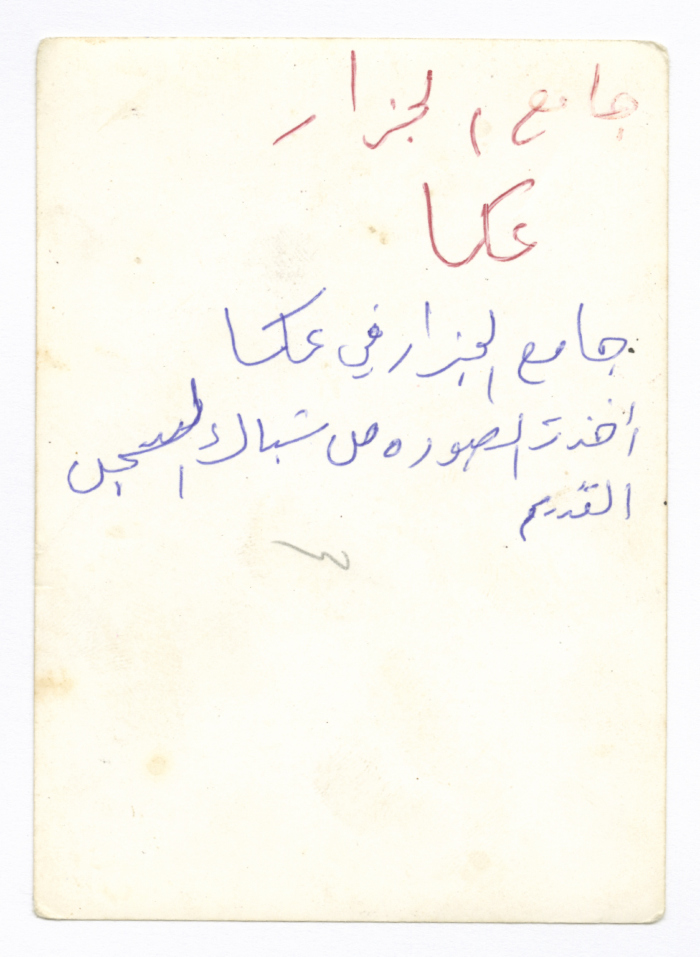 جامع الجزار
عكا
جامع الجزار في عكا
اخذت الصوره من شباك السجن
القديم